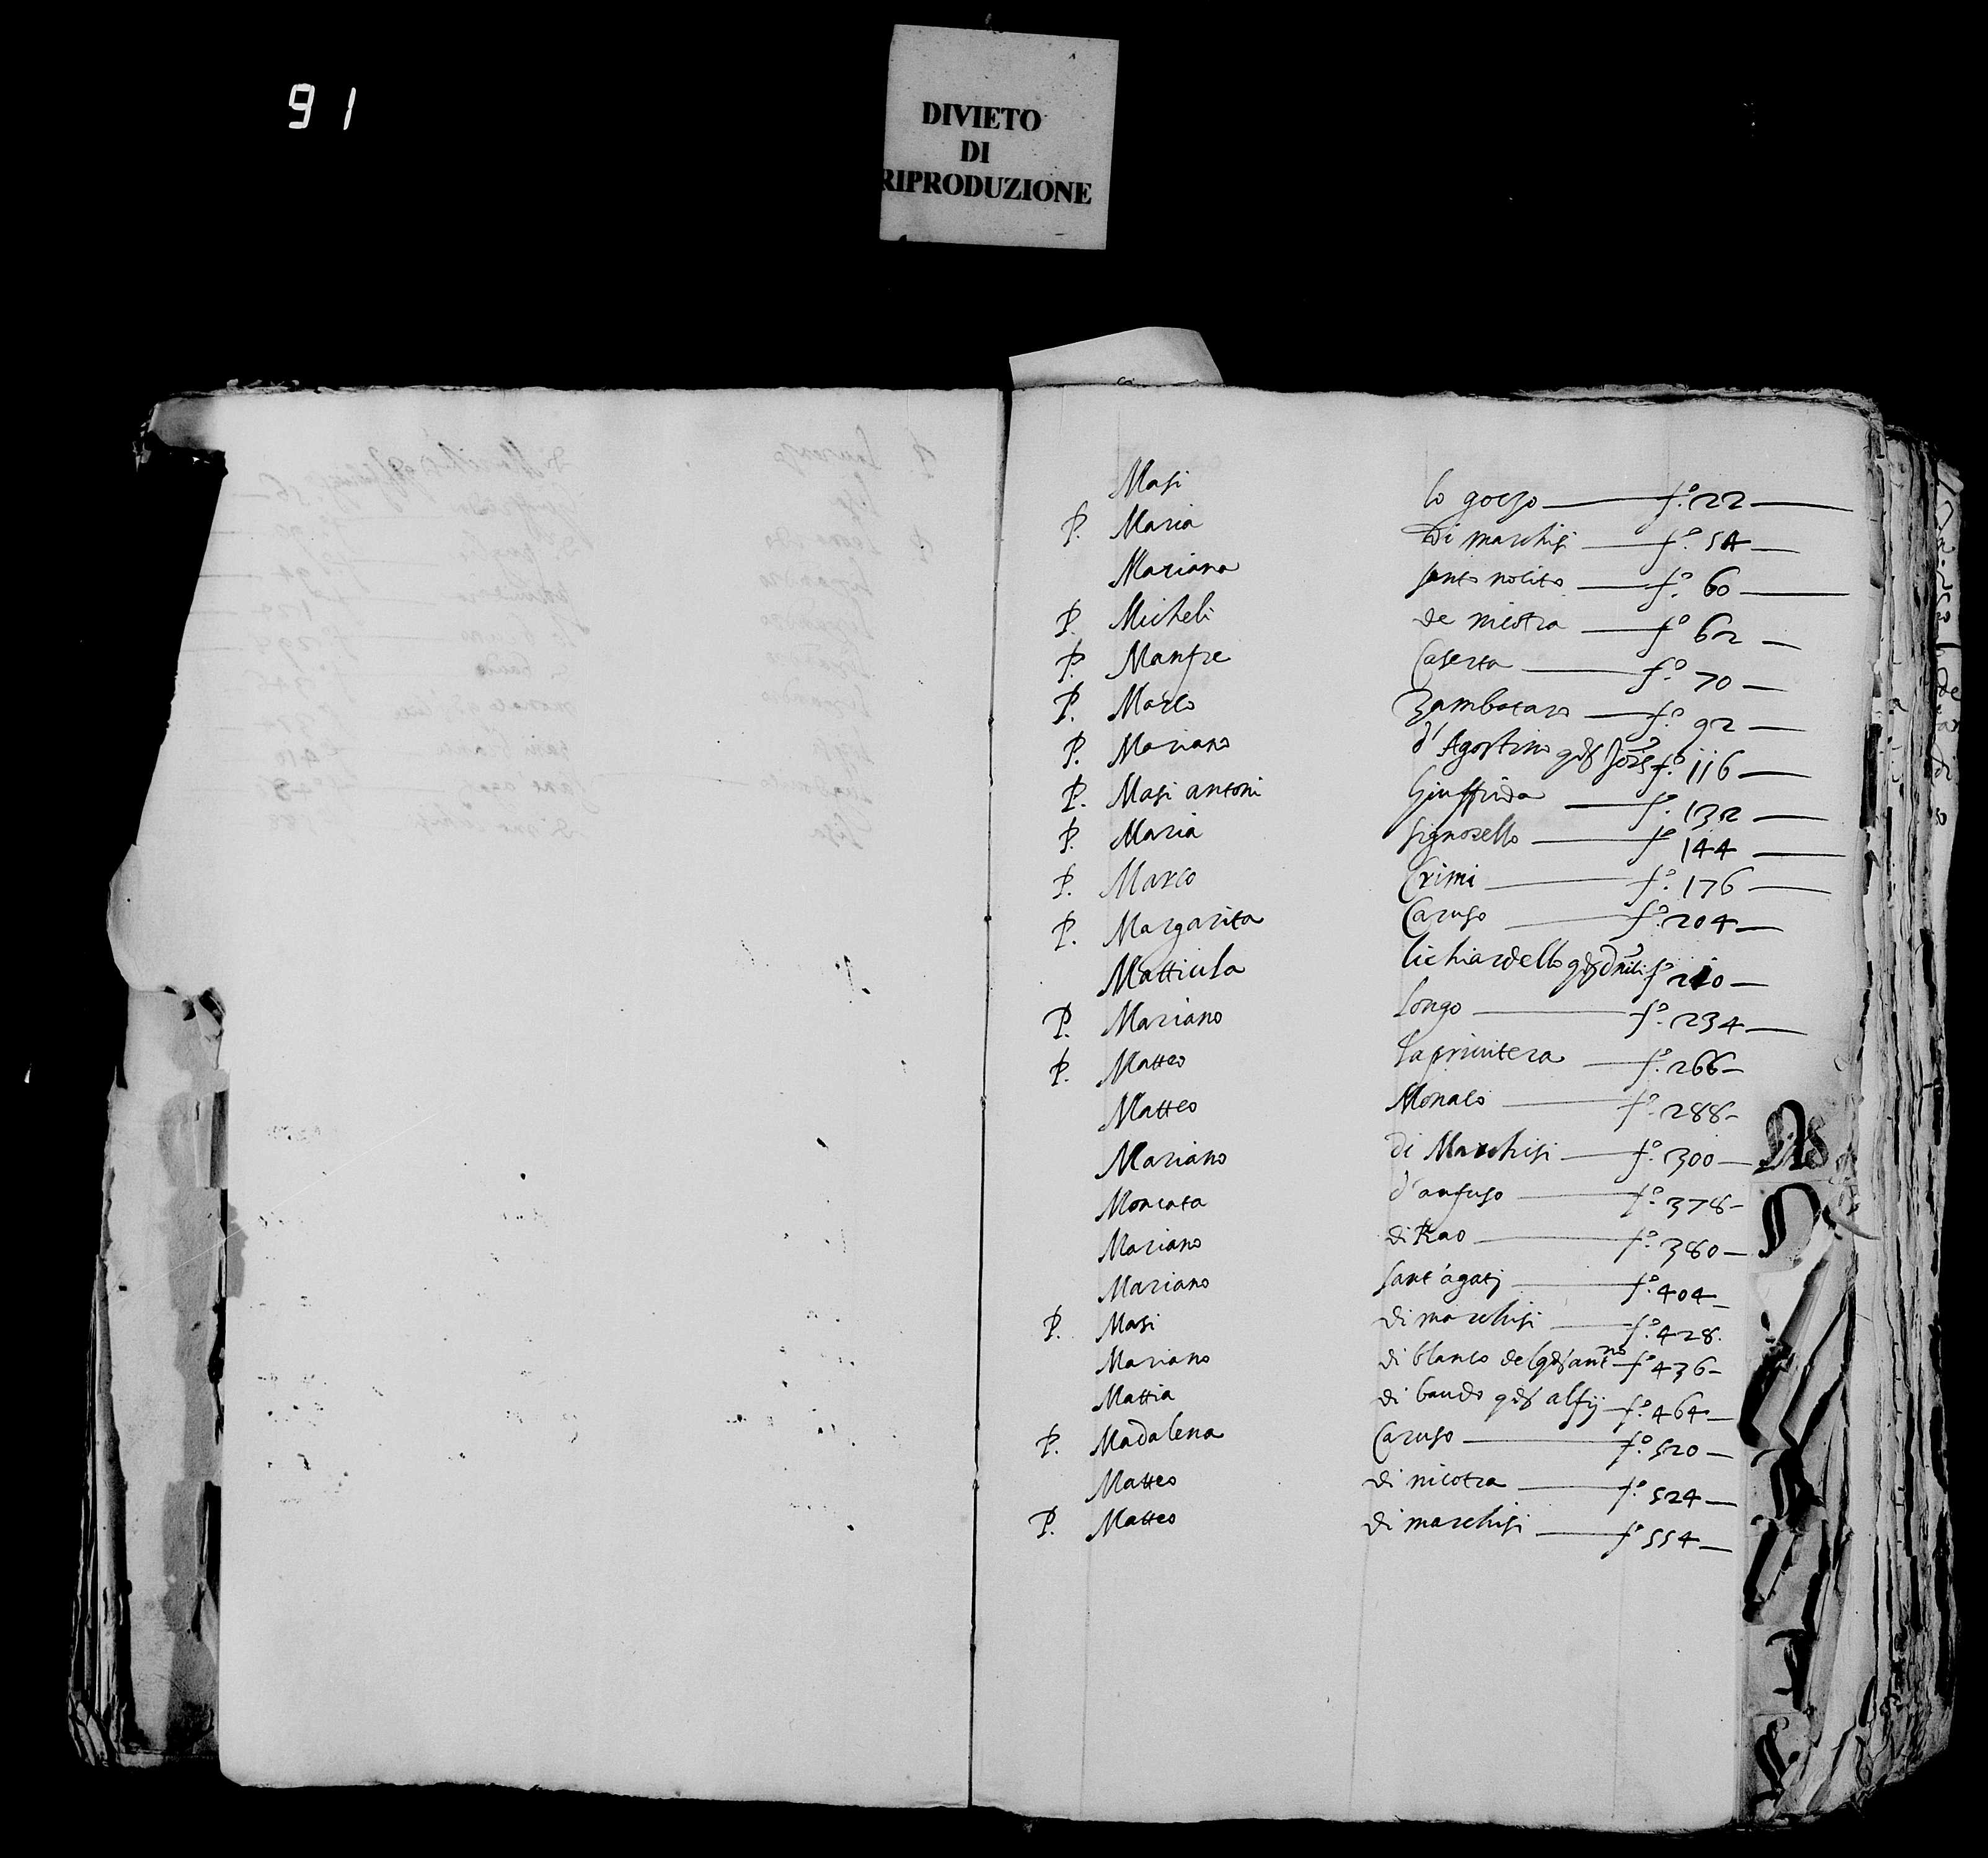 91
DIVIETO
DI
RIPRODUZIONE
Masi lo gorzo f.º 22
P. Maria Di marchisi f.º 54
Mariana santo nolito f.º 60
P. Micheli de nicotra f.º 62
P. Manfre Caserta f.º 70
P. Marco Zambataro f.º 92
P. Mariano d'Agostino f.º 116
P. Masi antoni Giuffrida f.º 132
P. Maria signorello fº 144
P. Marco Crimi f.º 176
P. Margarita Caruso f.º 204
Matticula lichiardello fº 210
P. Mariano longo f.º 234
P. Matteo la privitera f.º 266
Matteo Monaco f.º 288
Mariano di Marchisi f.º 300
Moncata d'anfuso f.º 378
Mariano di Rao f.º 380
Mariano sant'agati f.º 404
P. Masi di marchisi f.º 428.
Mariano di blanco del fº 436
Mattia di baudo qdº alfij f.º 464
P. Madalena Caruso f.º 520
Matteo di nicotra f.º 524
P. Matteo di marchisi fº 554